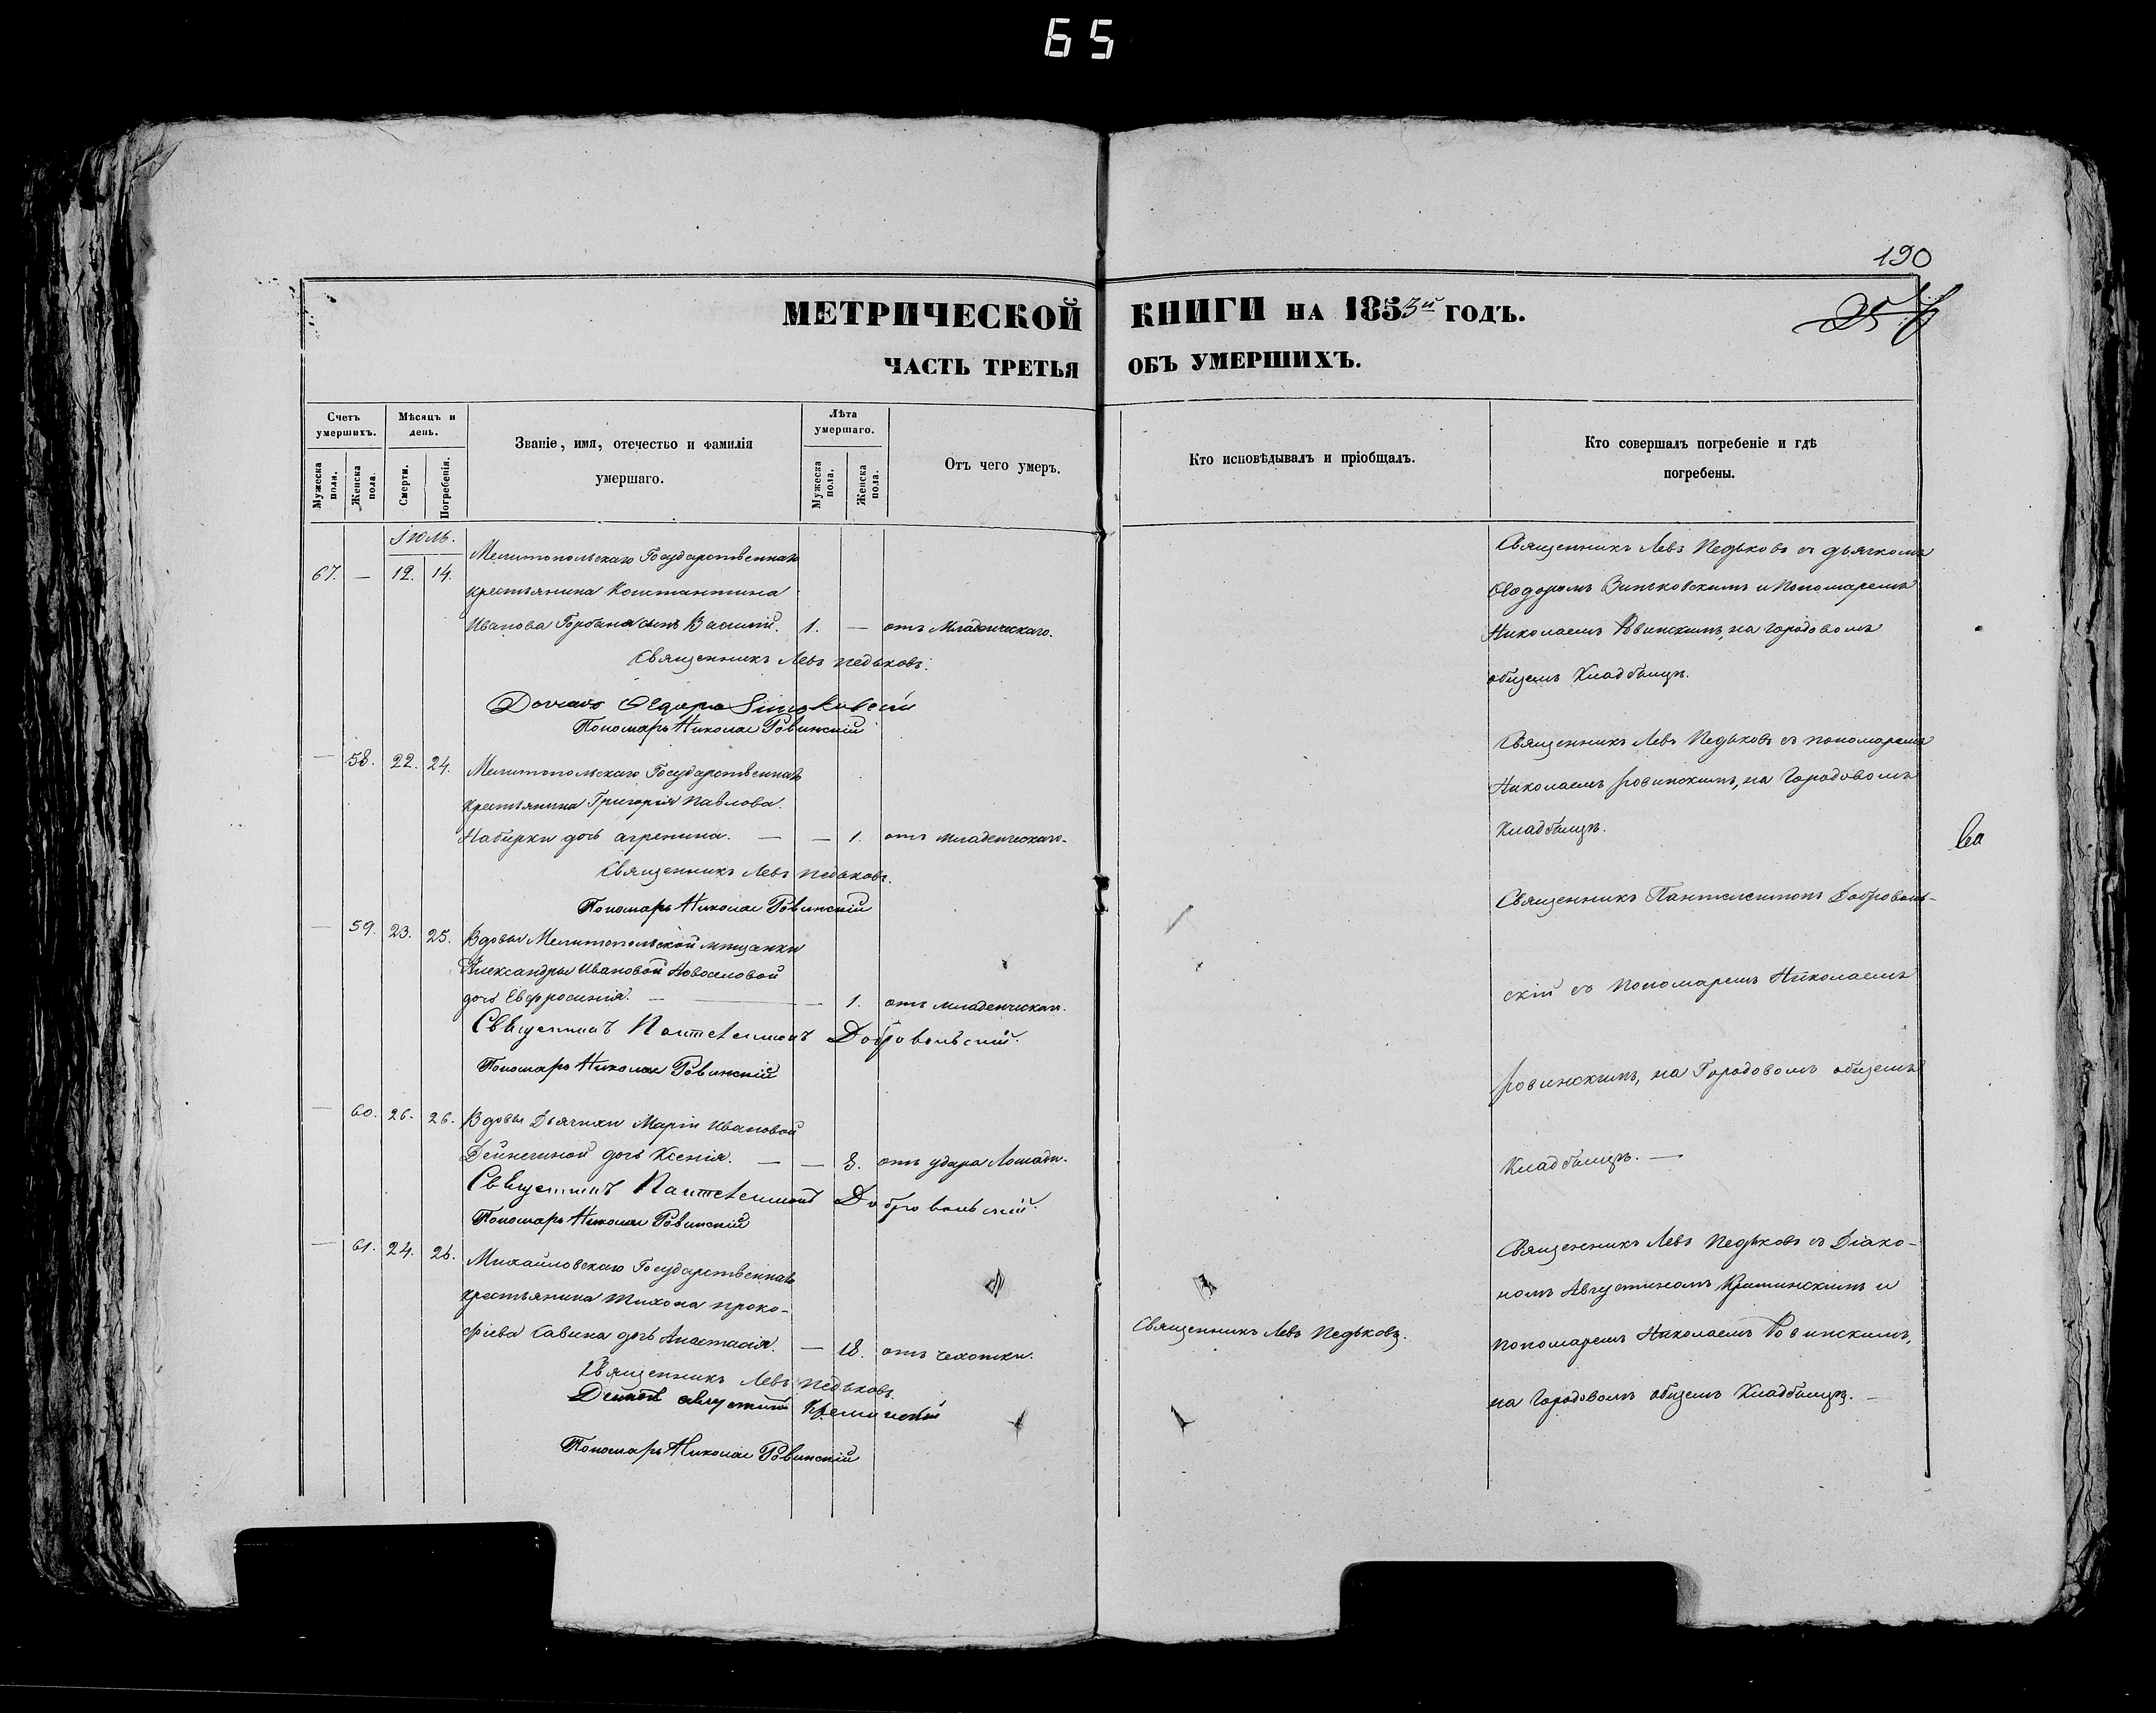 65
190
МЕТРИЧЕСКОЙ КНИГИ НА 1853й ГОДЪ.
ЧАСТЬ ТРЕТЬЯ ОБЪ УМЕРШИХЪ.
Счетъ умершихъ.
Мужеска пола.
Женска пола.
Мѣсяцъ и день.
Смерти.
Погребенія.
Званіе, имя, отечество и фамилія
умершаго.
Лѣта умершаго.
Мужеска пола.
Женска пола.
Отъ чего умеръ.
Кто исповѣдывалъ и пріобщалъ.
Кто совершалъ погребеніе и гдѣ
погребены.
Іюль.
67. — 12. 14. Мелитопольскаго Государственнаго
крестьянина Константина
Иванова сынъ Василій. 1. — отъ Младенческаго.
Священникъ Левъ Педьковъ.
Пономарь Николай Ровинскій
Священникъ Левъ Педьковъ съ дьячкомъ
Ѳеодоромъ и Пономаремъ
Николаемъ Ровинскимъ, на Городовомъ
общемъ Кладбищѣ.
— 58. 22. 24. Мелитопольскаго Государственнаго
крестьянина Григорія Павлова
дочь Агрепина. — — 1. отъ Младенческаго.
Священникъ Левъ Педьковъ.
Пономарь Николай Ровинскій
Священникъ Левъ Педьковъ съ пономаремъ
Николаемъ Ровинскимъ, на Городовомъ
Кладбищѣ.
— 59. 23. 25. Вдовы Мелитопольской мѣщанки
Александры Ивановой Новоселовой
дочь Евфросинія. — — 1. отъ младенческаго.
Священникъ Пантелеимонъ Добровольскій.
Пономарь Николай Ровинскій
Священникъ Пантелеимонъ Доброволь-
скій съ Пономаремъ Николаемъ
Ровинскимъ, на Городовомъ общемъ
Кладбищѣ. —
— 60. 26. 26. Вдовы Дьячихи Маріи Ивановой
дочь Ксенія. — — 8. отъ удара Лошади.
Священникъ Пантелеимонъ Добровольскій.
Пономарь Николай Ровинскій
— 61. 24. 26. Михайловскаго Государственнаго
крестьянина Тихона Проко-
фіева Савина дочь Анастасія. — 18. отъ Чехотки.
Священникъ Левъ Педьковъ.
Пономарь Николай Ровинскій
Священникъ Левъ Педьковъ.
Священникъ Левъ Педьковъ съ Діако-
номъ Августиномъ и
пономаремъ Николаемъ Ровинскимъ,
на Городовомъ общемъ Кладбищѣ. —